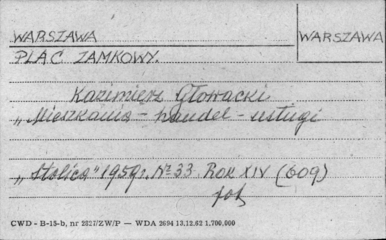 WARSZAWA
WARSZAWA
PLAC ZAMKOWY.
Kazimierz Głowacki
„Mieszkania - handel - usługi
„Stolica" 1959r. Nº 33. Rok XIV (609)
fot
CWD - B-15-b, nr 2827/ZW/P — WDA 2694 13.12.62 1.700.000